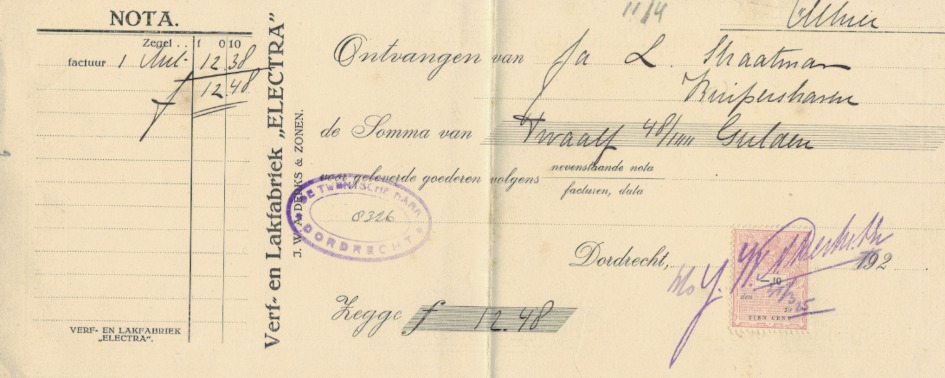 NOTA.
Zegel . . f 0 10
factuur 1 12.38
f 12.48
VERF- EN LAKFABRIEK
„ELECTRA”.
Verf- en Lakfabriek „ELECTRA”
J. W. A. DERKS & ZONEN.
11/4
Ontvangen van Fa L. Straatman
Kuipershaven
de Somma van Twaalf 48/100 Gulden
voor geleverde goederen volgens nevenstaande nota
facturen, data
DE TWENTSCHE BANK
8326
DORDRECHT
Dordrecht, 192
10
TIEN CENT
Zegge f 12.48